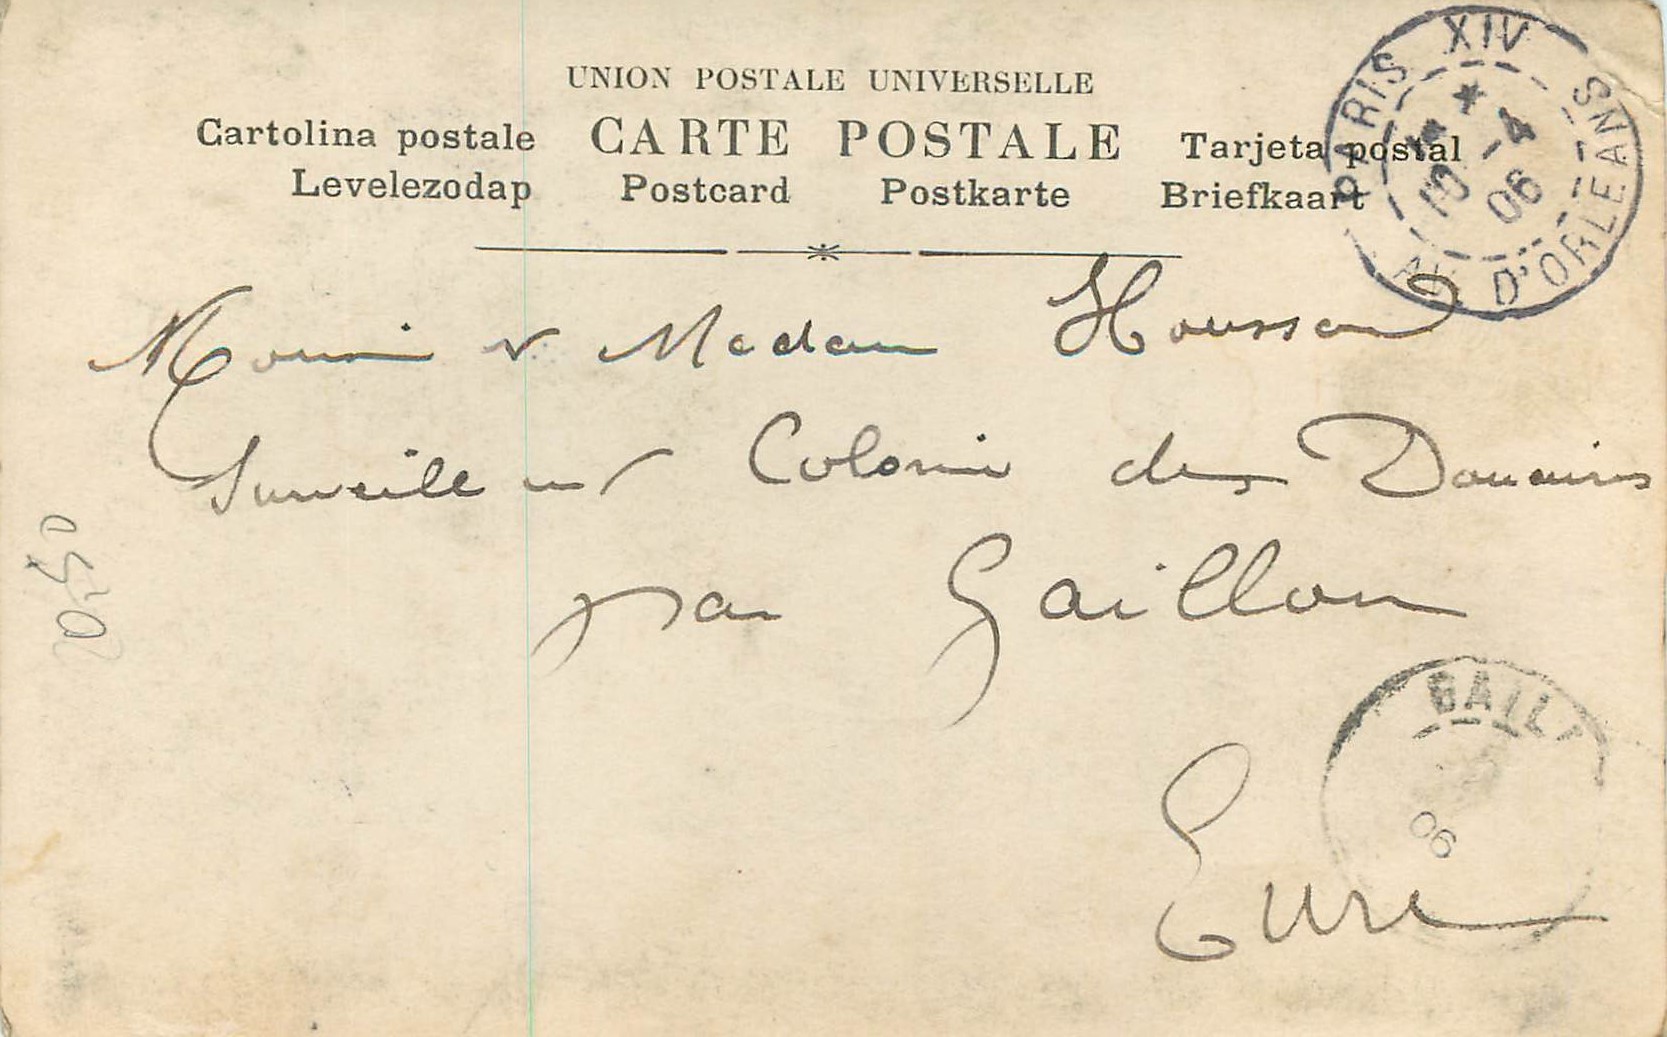 UNION POSTALE UNIVERSELLE
Cartolina postale CARTE POSTALE Tarjeta postal
Levelezodap Postcard Postkarte Briefkaart
PARIS XIV
AV. D'ORLEANS
10 - 4
06
& Madam Housson
Surveilleur Colonie des Douaires
par Gaillon
Eure
GAILL
06
20,50